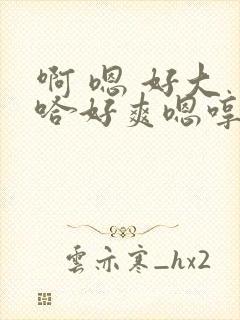 啊 嗯 好大
哈 好爽嗯哼
雲亦寒_hx2